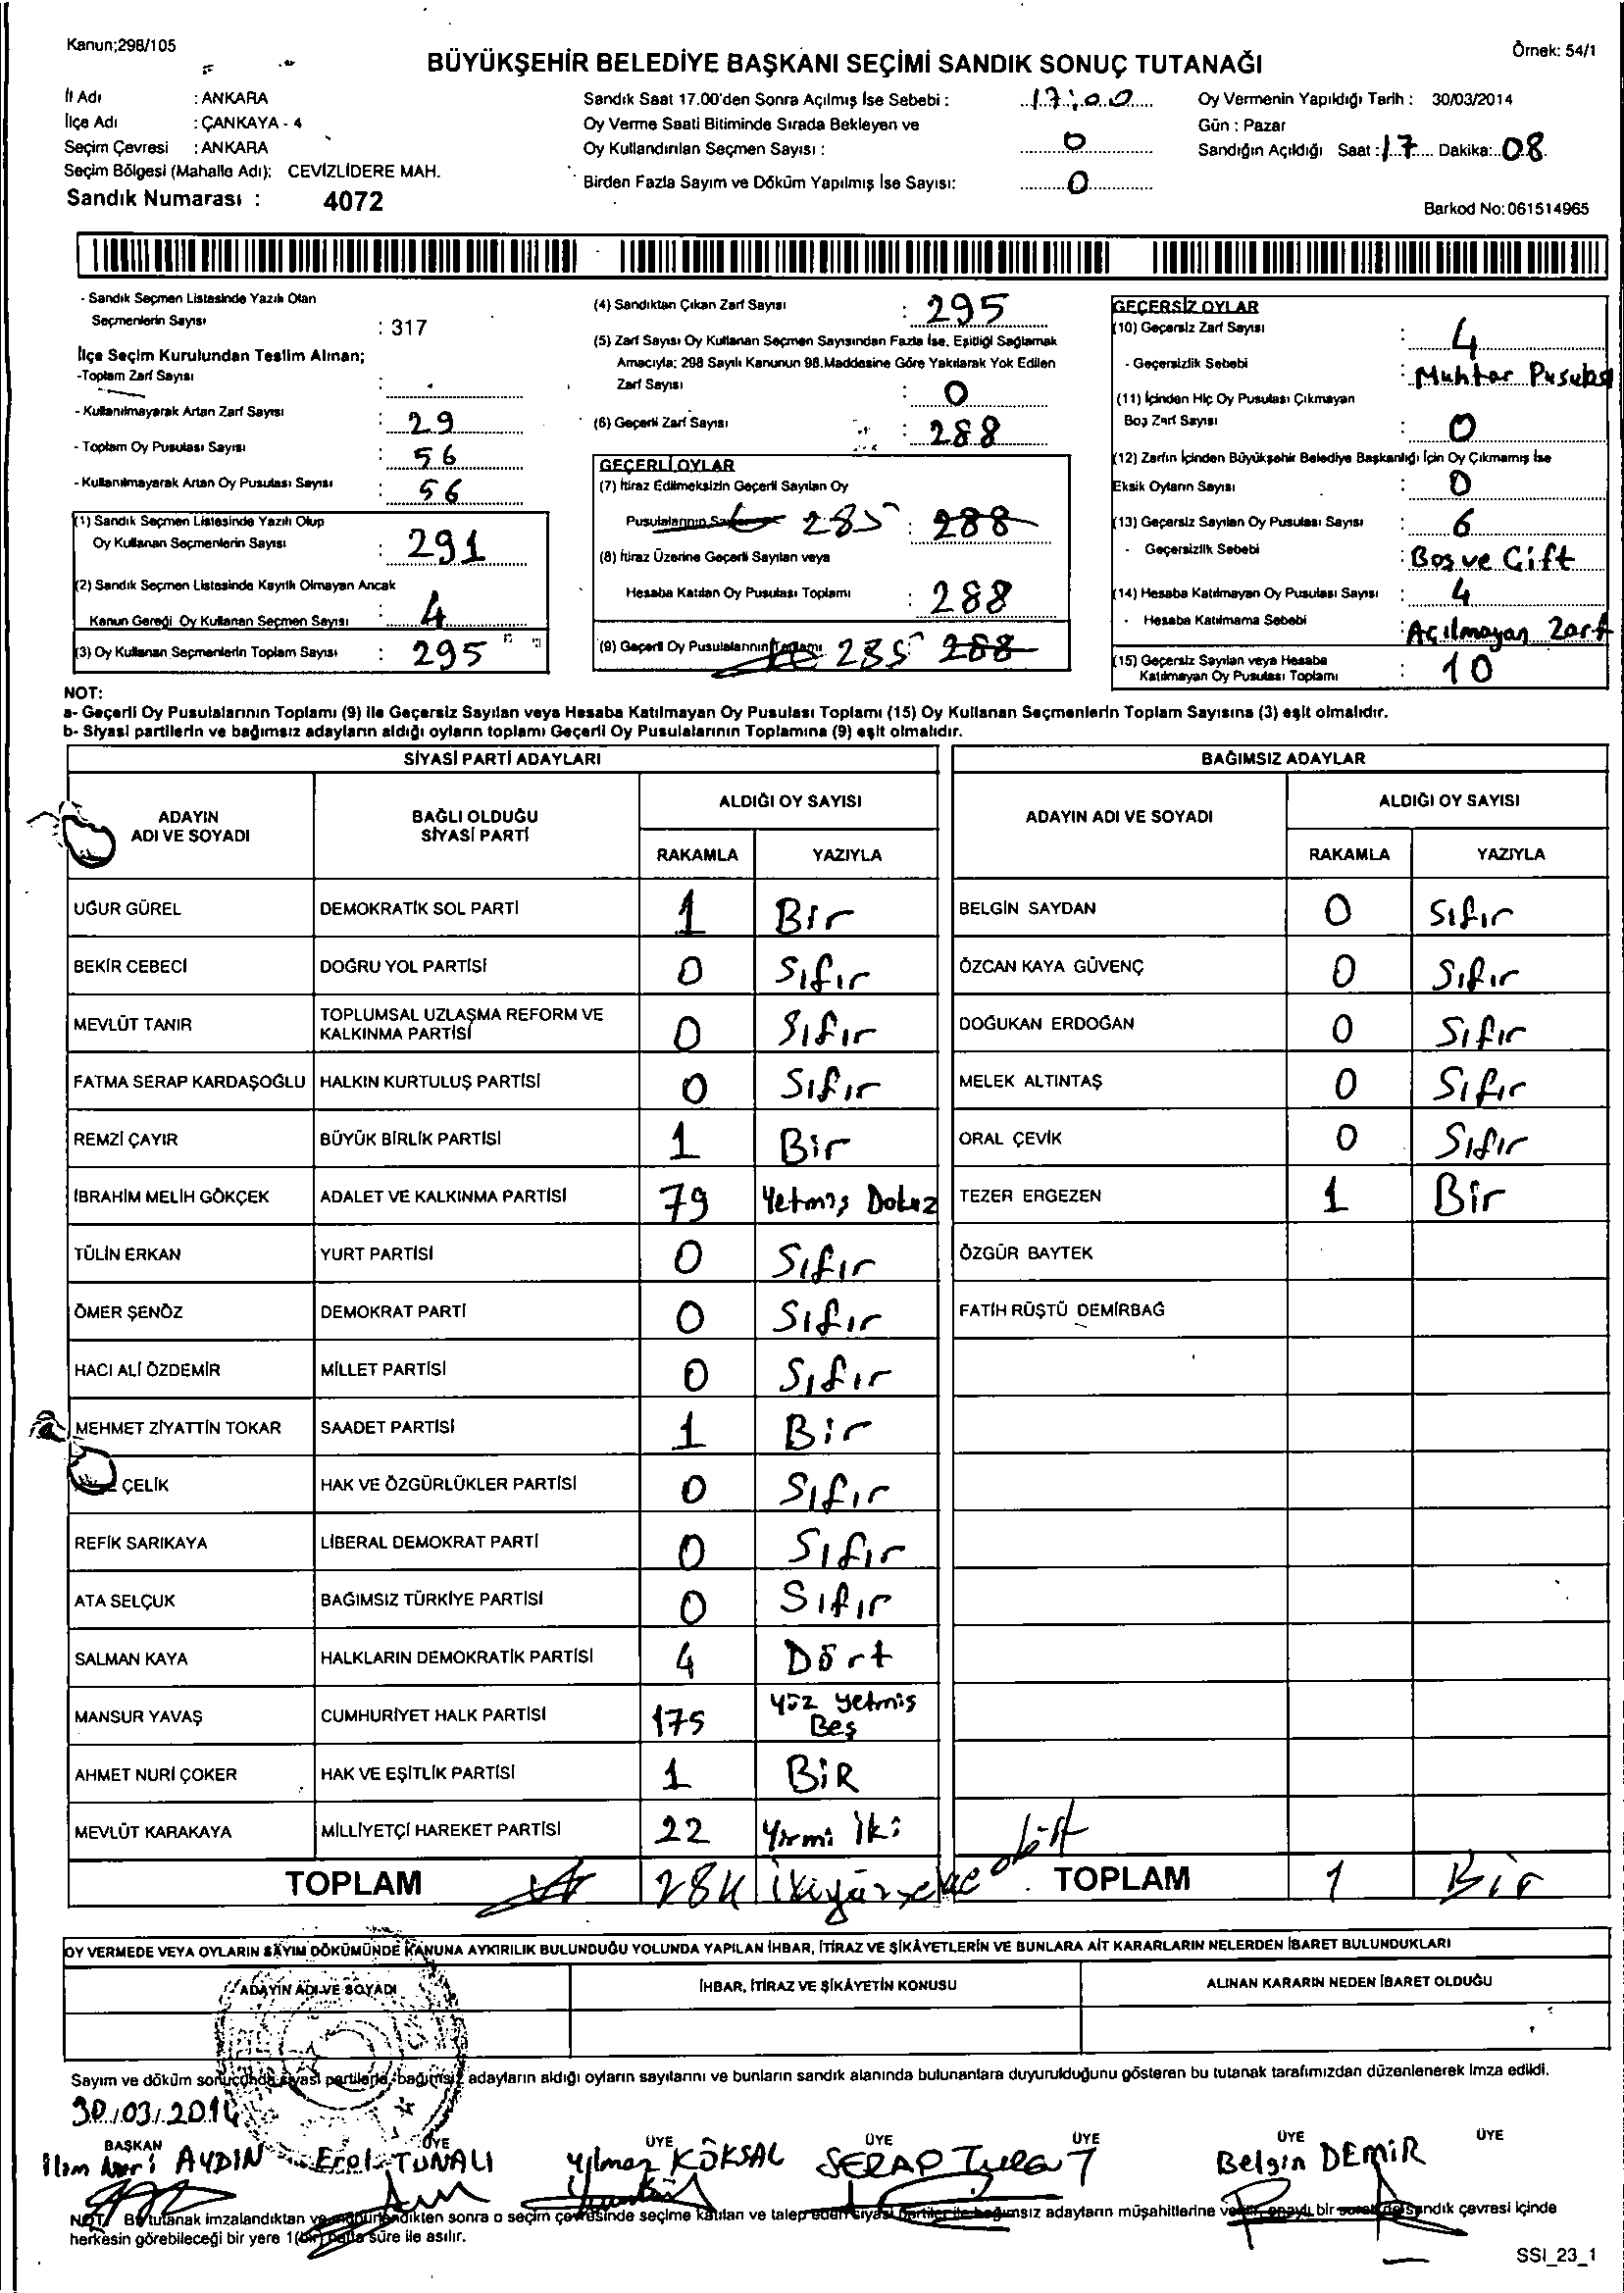 Kanun;298/105
Örnek: 54/1
BÜYÜKŞEHİR BELEDİYE BAŞKANI SEÇİMİ SANDIK SONUÇ TUTANAĞI
İl Adı : ANKARA
İlçe Adı : ÇANKAYA - 4
Seçim Çevresi : ANKARA
Seçim Bölgesi (Mahalle Adı): CEVİZLİDERE MAH.
Sandık Numarası : 4072
Sandık Saat 17.00'den Sonra Açılmış İse Sebebi : 17:00
Oy Verme Saati Bitiminde Sırada Bekleyen ve
Oy Kullandırılan Seçmen Sayısı : 0
Birden Fazla Sayım ve Döküm Yapılmış İse Sayısı: 0
Oy Vermenin Yapıldığı Tarih : 30/03/2014
Gün : Pazar
Sandığın Açıldığı Saat : 17 Dakika: 08
Barkod No: 061514965
- Sandık Seçmen Listesinde Yazılı Olan
Seçmenlerin Sayısı : 317
İlçe Seçim Kurulundan Teslim Alınan;
-Toplam Zarf Sayısı :
- Kullanılmayarak Artan Zarf Sayısı : 29
- Toplam Oy Pusulası Sayısı : 56
- Kullanılmayarak Artan Oy Pusulası Sayısı : 56
(1) Sandık Seçmen Listesinde Yazılı Olup
Oy Kullanan Seçmenlerin Sayısı : 291
(2) Sandık Seçmen Listesinde Kayıtlı Olmayan Ancak
Kanun Gereği Oy Kullanan Seçmen Sayısı : 4
(3) Oy Kullanan Seçmenlerin Toplam Sayısı : 295
(4) Sandıktan Çıkan Zarf Sayısı : 295
(5) Zarf Sayısı Oy Kullanan Seçmen Sayısından Fazla İse, Eşitliği Sağlamak
Amacıyla; 298 Sayılı Kanunun 98.Maddesine Göre Yakılarak Yok Edilen
Zarf Sayısı : 0
(6) Geçerli Zarf Sayısı : 288
GEÇERLİ OYLAR
(7) İtiraz Edilmeksizin Geçerli Sayılan Oy
Pusulalarının 285 : 288
(8) İtiraz Üzerine Geçerli Sayılan veya
Hesaba Katılan Oy Pusulası Toplamı : 288
(9) Geçerli Oy Pusulalarının Toplamı 285 288
GEÇERSİZ OYLAR
(10) Geçersiz Zarf Sayısı : 4
- Geçersizlik Sebebi : Muhtar Pusulası
(11) İçinden Hiç Oy Pusulası Çıkmayan
Boş Zarf Sayısı : 0
(12) Zarfın İçinden Büyükşehir Belediye Başkanlığı İçin Oy Çıkmamış İse
Eksik Oyların Sayısı : 0
(13) Geçersiz Sayılan Oy Pusulası Sayısı : 6
- Geçersizlik Sebebi : Boş ve Çift
(14) Hesaba Katılmayan Oy Pusulası Sayısı : 4
- Hesaba Katılmama Sebebi : Açılmayan Zarf
(15) Geçersiz Sayılan veya Hesaba
Katılmayan Oy Pusulası Toplamı : 10
NOT:
a- Geçerli Oy Pusulalarının Toplamı (9) ile Geçersiz Sayılan veya Hesaba Katılmayan Oy Pusulası Toplamı (15) Oy Kullanan Seçmenlerin Toplam Sayısına (3) eşit olmalıdır.
b- Siyasi partilerin ve bağımsız adayların aldığı oyların toplamı Geçerli Oy Pusulalarının Toplamına (9) eşit olmalıdır.
SİYASİ PARTİ ADAYLARI
BAĞIMSIZ ADAYLAR
ADAYIN ADI VE SOYADI
BAĞLI OLDUĞU SİYASİ PARTİ
ALDIĞI OY SAYISI
RAKAMLA YAZIYLA
ADAYIN ADI VE SOYADI
ALDIĞI OY SAYISI
RAKAMLA YAZIYLA
UĞUR GÜREL DEMOKRATİK SOL PARTİ 1 Bir BELGİN SAYDAN 0 Sıfır
BEKİR CEBECİ DOĞRU YOL PARTİSİ 0 Sıfır ÖZCAN KAYA GÜVENÇ 0 Sıfır
MEVLÜT TANIR TOPLUMSAL UZLAŞMA REFORM VE KALKINMA PARTİSİ 0 Sıfır DOĞUKAN ERDOĞAN 0 Sıfır
FATMA SERAP KARDAŞOĞLU HALKIN KURTULUŞ PARTİSİ 0 Sıfır MELEK ALTINTAŞ 0 Sıfır
REMZİ ÇAYIR BÜYÜK BİRLİK PARTİSİ 1 Bir ORAL ÇEVİK 0 Sıfır
İBRAHİM MELİH GÖKÇEK ADALET VE KALKINMA PARTİSİ 79 Yetmiş Dokuz TEZER ERGEZEN 1 Bir
TÜLİN ERKAN YURT PARTİSİ 0 Sıfır ÖZGÜR BAYTEK
ÖMER ŞENÖZ DEMOKRAT PARTİ 0 Sıfır FATİH RÜŞTÜ DEMİRBAĞ
HACI ALİ ÖZDEMİR MİLLET PARTİSİ 0 Sıfır
MEHMET ZİYATTİN TOKAR SAADET PARTİSİ 1 Bir
ÇELİK HAK VE ÖZGÜRLÜKLER PARTİSİ 0 Sıfır
REFİK SARIKAYA LİBERAL DEMOKRAT PARTİ 0 Sıfır
ATA SELÇUK BAĞIMSIZ TÜRKİYE PARTİSİ 0 Sıfır
SALMAN KAYA HALKLARIN DEMOKRATİK PARTİSİ 4 Dört
MANSUR YAVAŞ CUMHURİYET HALK PARTİSİ 175 Yüz yetmiş Beş
AHMET NURİ ÇOKER HAK VE EŞİTLİK PARTİSİ 1 BiR
MEVLÜT KARAKAYA MİLLİYETÇİ HAREKET PARTİSİ 22 Yirmi İki
TOPLAM 284 ikiyüzseksendört TOPLAM 1 Bir
OY VERMEDE VEYA OYLARIN SAYIM DÖKÜMÜNDE KANUNA AYKIRILIK BULUNDUĞU YOLUNDA YAPILAN İHBAR, İTİRAZ VE ŞİKÂYETLERİN VE BUNLARA AİT KARARLARIN NELERDEN İBARET BULUNDUKLARI
ADAYIN ADI VE SOYADI İHBAR, İTİRAZ VE ŞİKÂYETİN KONUSU ALINAN KARARIN NEDEN İBARET OLDUĞU
Sayım ve döküm sonucunda siyasi partilerle, bağımsız adayların aldığı oyların sayılarını ve bunların sandık alanında bulunanlara duyurulduğunu gösteren bu tutanak tarafımızdan düzenlenerek imza edildi.
30/03/2014
BAŞKAN ÜYE ÜYE ÜYE ÜYE ÜYE ÜYE
AYDIN Erol TUNALI Yılmaz KÖKSAL SERAP Belgin DEMiR
NOT: Bu tutanak imzalandıktan ve mühürlendikten sonra o seçim çevresinde seçime katılan ve talep eden siyasi partiler ile bağımsız adayların müşahitlerine verilir, onaylı bir sureti de sandık çevresi içinde
herkesin görebileceği bir yere 1(bir) hafta süre ile asılır.
SSI_23_1